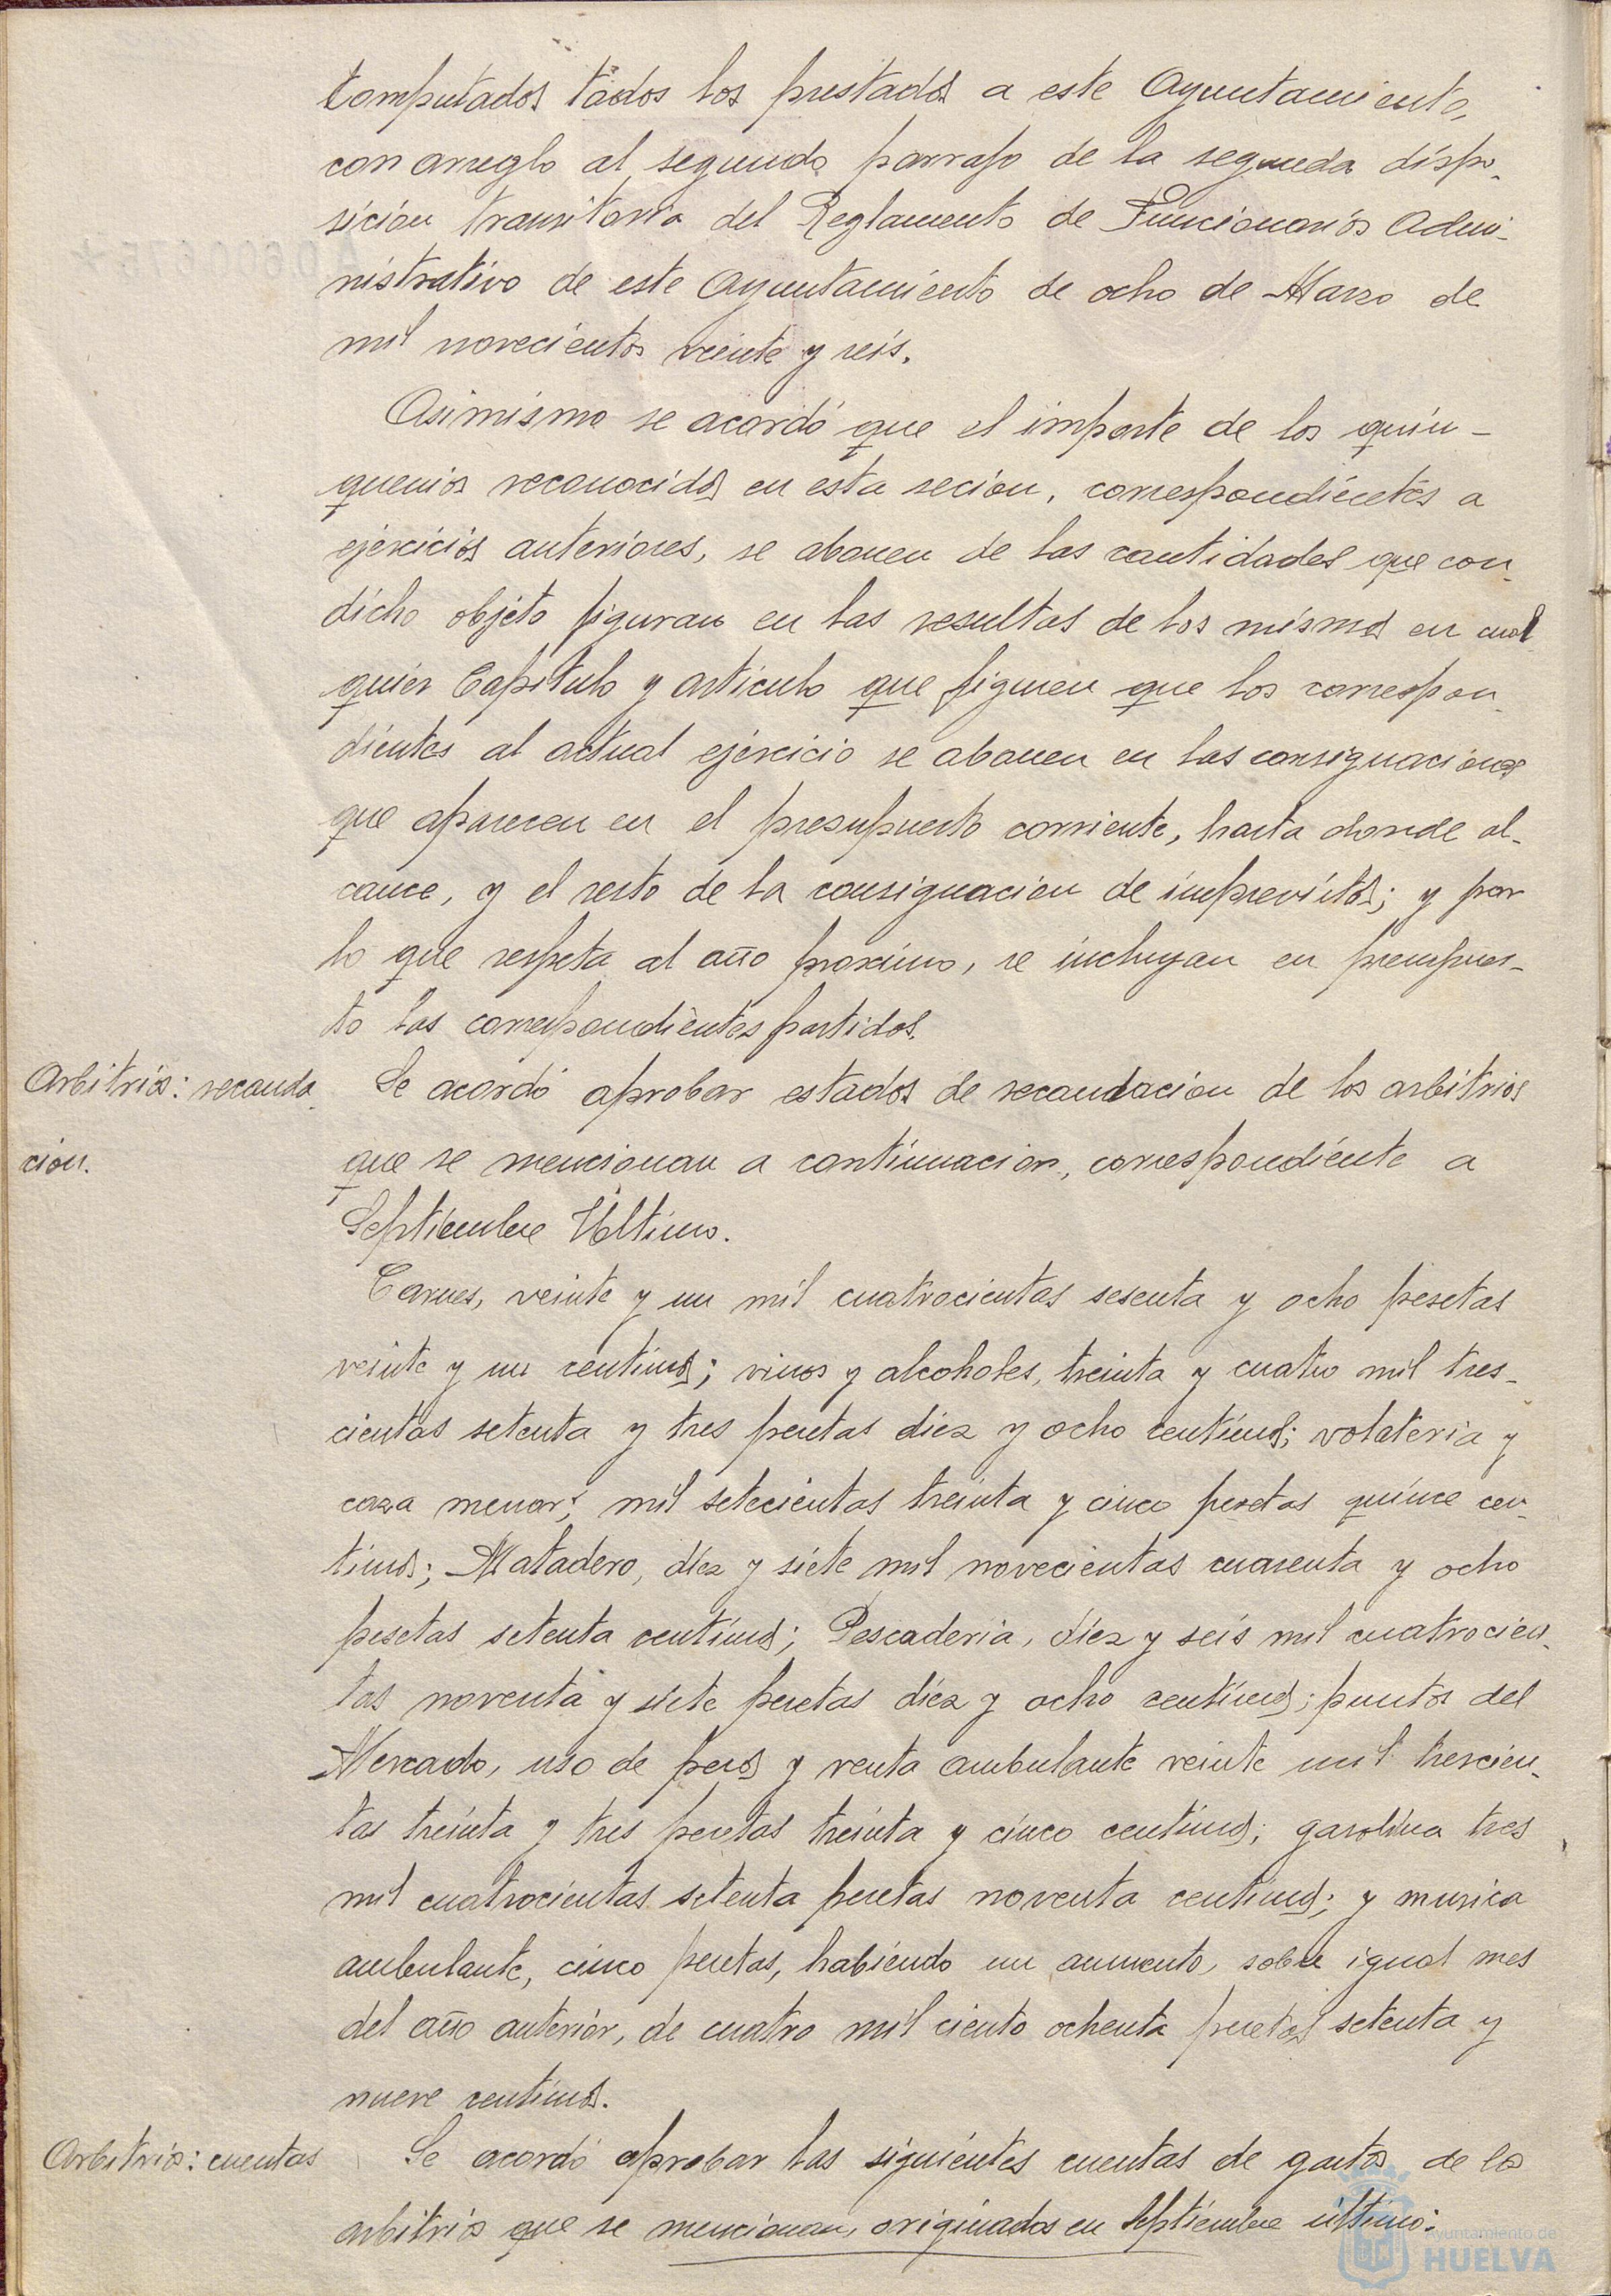 computados todos los prestados a este Ayuntamiento,
con arreglo al segundo parrafo de la segunda dispo-
sición transitoria del Reglamento de Funcionarios Admi-
nistrativo de este Ayuntamiento de ocho de Marzo de
mil novecientos veinte y seis.
Asimismo se acordó que el importe de los quin-
quenios reconocidos en esta secion, correspondientes a
ejercicios anteriores, se abonen de las cantidades que con
dicho objeto figuran en las resultas de los mismos en cual
quier Capitulo y articulo que figuren que los correspon-
dientes al actual ejercicio se abonen en las consignaciones
que aparecen en el presupuesto corriente, hasta donde al-
cance, y el resto de la consignacion de imprevistos; y por
lo que respeta al año proximo, se incluyan en presupues-
to las correspondientes partidas.
Arbitrios: recauda
cion.
Se acordó aprobar estados de recaudacion de los arbitrios
que se mencionan a continuacion, correspondiente a
Septiembre Ultimo.
Carnes, veinte y un mil cuatrocientas sesenta y ocho pesetas
veinte y un centimos; vinos y alcoholes, treinta y cuatro mil tres-
cientas setenta y tres pesetas diez y ocho centimos; volateria y
caza menor; mil setecientas treinta y cinco pesetas quince cen-
timos; Matadero, diez y siete mil novecientas cuarenta y ocho
pesetas setenta centimos; Pescaderia, diez y seis mil cuatrocien-
tas noventa y siete pesetas diez y ocho centimos; puestos del
Mercado, uso de pesos y venta ambulante veinte mil trescien-
tas treinta y tres pesetas treinta y cinco centimos; gasolina tres
mil cuatrocientas setenta pesetas noventa centimos; y musica
ambulante, cinco pesetas, habiendo un aumento, sobre igual mes
del año anterior, de cuatro mil ciento ochenta pesetas setenta y
nueve centimos.
Arbitrios: cuentas
Se acordó aprobar las siguientes cuentas de gastos de los
arbitrios que se mencionan, originados en Septiembre último:
Ayuntamiento de
HUELVA